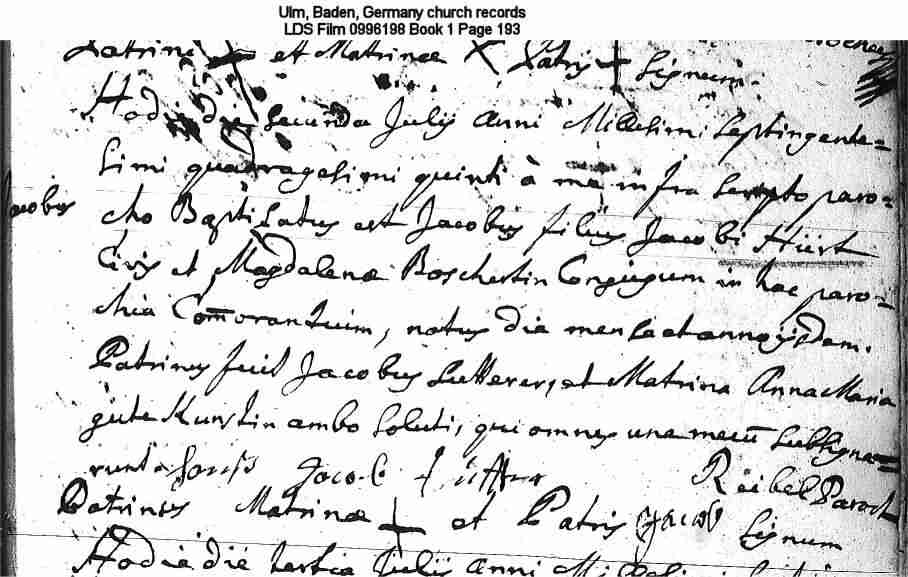 Ulm, Baden, Germany church records
LDS Film 0996198 Book 1 Page 193
et Matrinæ Patris Signum.
Hodie die secunda Julij anni Millesimi septingente=
simi quadragesimi quinti à me infra scripto paro=
Jacobus
cho Baptisatus est Jacobus filius Jacobi Hürt
Civis et Magdalenæ Boschertin Conjugum in hac paro=
chia Com̄orantium, natus die mense et anno ijsdem.
Patrinus fuit Jacobus Lutterer, et Matrina Anna Maria
gute Kunstin ambo soluti, qui omnes una mecū subsigna=
runt Jacob
Reibel Paroch
Patrinus Matrinæ et Patris Jacob Signum
Hodie die tertia Julij anni